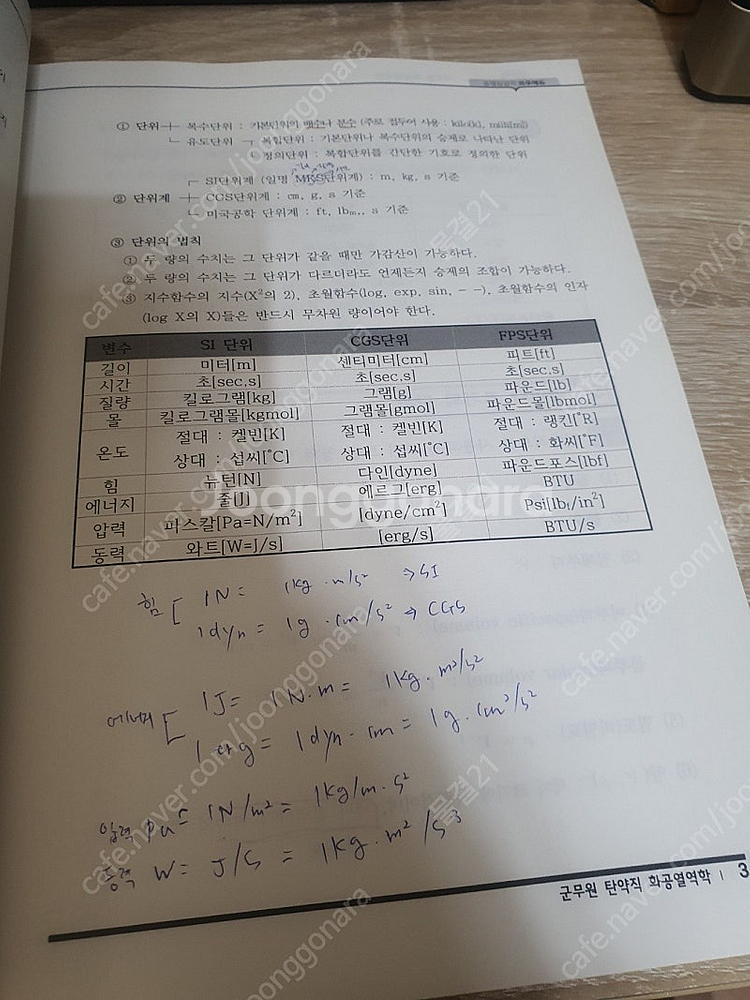 ① 단위 복수단위 : 기본단위의 배수나 분수 (주로 접두어 사용 : kilo[k], milli[m])
유도단위 복합단위 : 기본단위나 복수단위의 승제로 나타난 단위
정의단위 : 복합단위를 간단한 기호로 정의한 단위
SI단위계 (일명 MKS단위계) : m, kg, s 기준
② 단위계 CGS단위계 : cm, g, s 기준
미국공학 단위계 : ft, lbm, s 기준
③ 단위의 법칙
① 두 량의 수치는 그 단위가 같을 때만 가감산이 가능하다.
② 두 량의 수치는 그 단위가 다르더라도 언제든지 승제의 조합이 가능하다.
③ 지수함수의 지수(X²의 2), 초월함수(log, exp, sin, - -), 초월함수의 인자
(log X의 X)들은 반드시 무차원 량이어야 한다.
변수 SI 단위 CGS단위 FPS단위
길이 미터[m] 센티미터[cm] 피트[ft]
시간 초[sec.s] 초[sec.s] 초[sec.s]
질량 킬로그램[kg] 그램[g] 파운드[lb]
몰 킬로그램몰[kgmol] 그램몰[gmol] 파운드몰[lbmol]
온도 절대 : 켈빈[K] 절대 : 켈빈[K] 절대 : 랭킨[°R]
상대 : 섭씨[°C] 상대 : 섭씨[°C] 상대 : 화씨[°F]
힘 뉴턴[N] 다인[dyne] 파운드포스[lbf]
에너지 줄[J] 에르그[erg] BTU
압력 파스칼[Pa=N/m²] [dyne/cm²] Psi[lbf/in²]
동력 와트[W=J/s] [erg/s] BTU/s
힘 [ 1N = 1kg·m/s² ⇒ SI
1dyn = 1g·cm/s² ⇒ CGS
에너지 [ 1J = 1N·m = 1kg·m²/s²
1erg = 1dyn·cm = 1g·cm²/s²
압력 Pa = 1N/m² = 1kg/m·s²
동력 W = J/S = 1kg·m²/s³
군무원 탄약직 화공열역학 | 3
joonggonara
cafe.naver.com/joonggonara
물결21